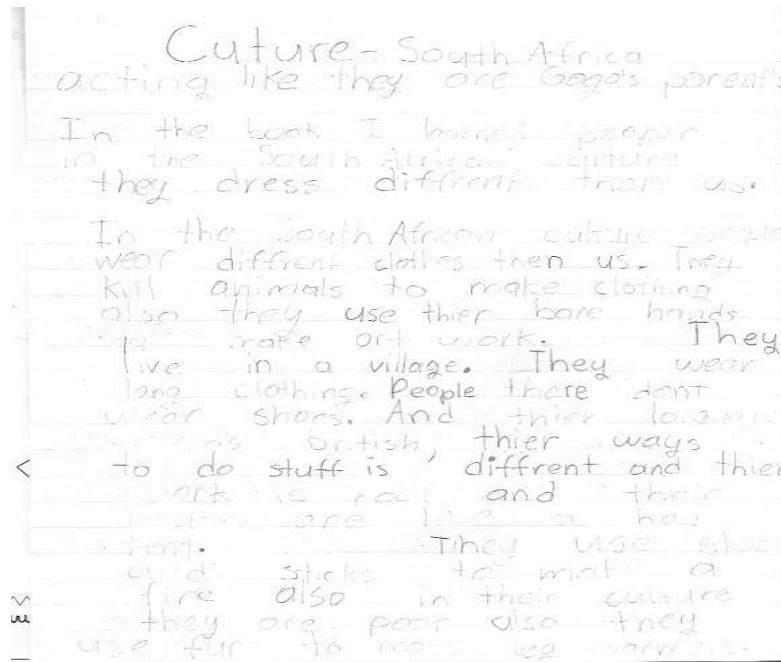 Cuture - South Africa
acting like they are Gogo's parent's
In the book I learned people
in the South African culture
they dress diffrent then us.
In the South African culture people
wear diffrent clothes then us. They
kill animals to make clothing
also they use thier bare hands
to make art work. They
live in a village. They wear
long clothing. People there dont
wear shoes. And thier
british, thier ways
to do stuff is diffrent and thier
is and their
are like a
tent. They use
and sticks to a
fire also in their culture
they are poor also they
use fur to leg